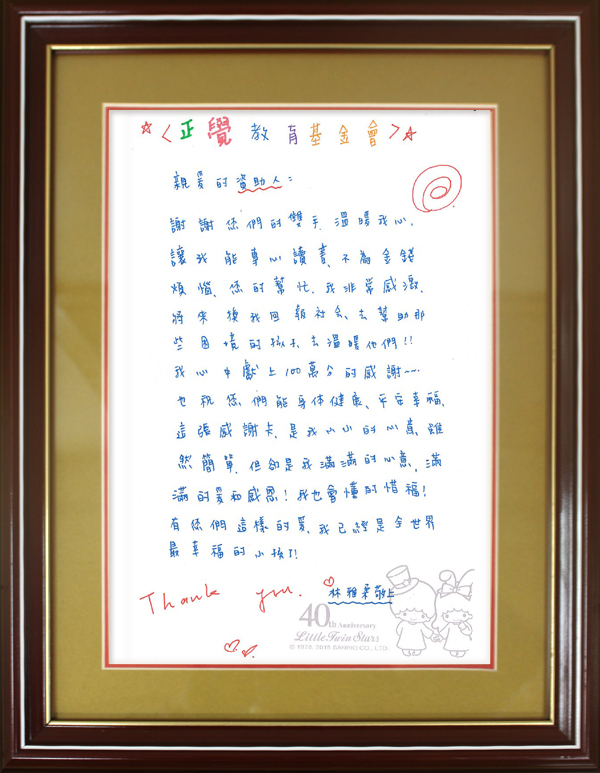 ☆<正覺教育基金會>☆
親愛的資助人：
謝謝您們的雙手,溫暖我心,
讓我能專心讀書,不為金錢
煩惱,您的幫忙,我非常感激,
將來換我回報社會、去幫助那
些困境的孩子、去溫暖他們!!
我心中獻上100萬分的感謝~~
也祝您們能身体健康、平安幸福,
這張感謝卡,是我小小的心意,雖
然簡單,但卻是我滿滿的心意,滿
滿的愛和感恩!我也會懂的惜福!
有您們這樣的愛,我已經是全世界
最幸福的小孩了!
Thank you. ♡ 林雅柔敬上
40th Anniversary
Little Twin Stars
© 1976, 2015 SANRIO CO., LTD.